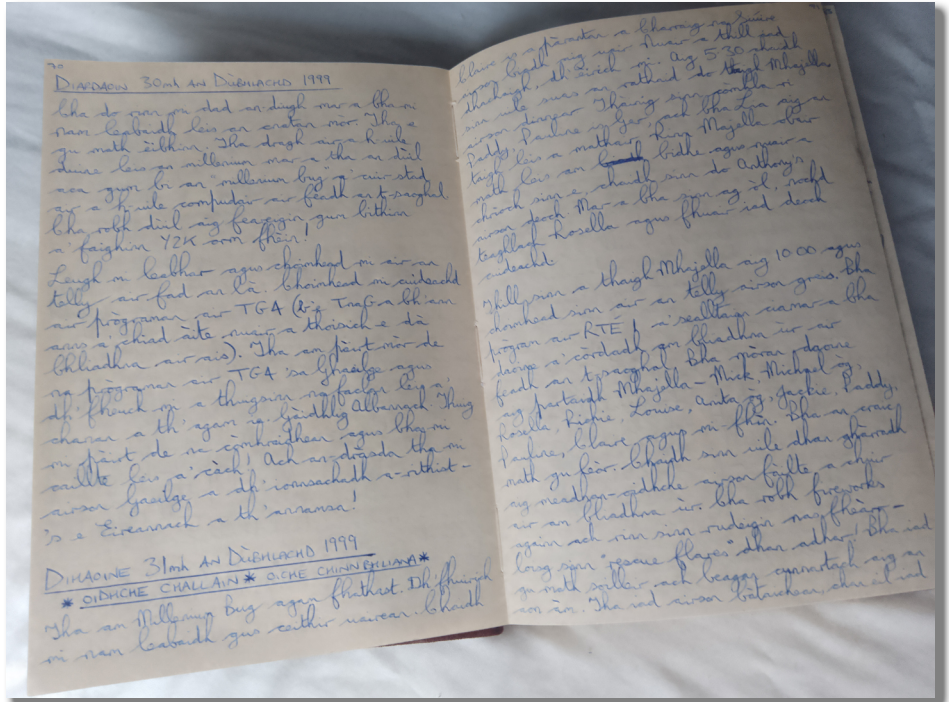 70
DIARDAOIN 30mh AN DÙBHLACHD 1999
Cha do rinn mi dad an-diugh mar a bha mi
nam leabaidh leis an cnatan mòr. Tha e
gu math èibhinn. Tha dragh air a h-uile
duine leis an millenium mar a tha an dùil
aca gum bi an "millenium bug" a' cuir stad
air a h-uile compudair air feadh an t-saoghal
Cha robh dùil aig fear againn gun bithinn
a' faighinn Y2K orm fhèin!
Leugh mi leabhar agus choimhead mi air an
telly air fad an là. Choimhead mi cuideachd
air prògraman air TG4 (b'e TnaG a bh'ann
anns a' chiad àite nuair a thoisich e dà
bhliadhna air ais). Tha am pàirt mòr de
na prògraman air TG4 'sa Ghaeilge agus
dh'fheuch mi a thuigsinn na faclan leis a'
chanan a th' agam ie. Gàidhlig Albannach. Thug
mi pàirt de na còmhraidhean agus bha mi
caillte leis a' cèch! Ach an-dràsda tha mi
airson Gaeilge a dh'ionnsachadh a-rithist -
's e Èireannach a th' annamsa!
DIHAOINE 31mh AN DÙBHLACHD 1999
* OIDHCHE CHALLAIN * OÍCHE CHINN BHLIANA *
Tha am Millenium Bug agam fhathast. Dh'fhuirich
mi nam leabaidh gus ceithir uairean. Chaidh
Claire is a pàrantan a bharraig na Siùire
airson biadh
dhachaigh, dh'èirich mi. Aig 5.30 chaidh
sinn uile suas an rathad do thaigh Mhajella
airson dinnear. Thàinig sinn còmhla ri
Paddy, Pauline is Ger ach bha Lisa aig an
taigh leis a mathair. Rinn Majella obair
math leis am biadh agus nuair a
chrìoch sinn e, chaidh sinn do Anthony's
airson deoch. Mar a bha sinn ag òl, nochd
teaghlach Rosella agus fhuair iad deoch
cuideachd.
Thill sinn a thaigh Mhajella aig 10.00 agus
choimhead sinn air an telly airson greis. Bha
prògram air RTÉ 1 a' sealltainn ciamar a bha
daoine a' còrdadh am bliadhna ùr air
feadh an t-saoghal. Bha mòran daoine
aig partaidh Mhajella - Mick, Michael òg,
Rosella, Richie, Louise, Anita òg, Jackie, Paddy,
Pauline, Claire, agus mi-fhìn. Bha an craic
math gu leòr. Chaidh sinn uile dhan ghàrradh
aig meadhan-oidhche airson fàilte a chuir
air am bliadhna ùr. Cha robh fireworks
againn ach rinn sinn rudeigin nas fheàrr -
loisg sinn "rescue flares" dhan adhar! Bha iad
gu math soilleir ach beagan cunnartach aig an
aon àm. Tha iad airson bàtaichean, chan eil iad